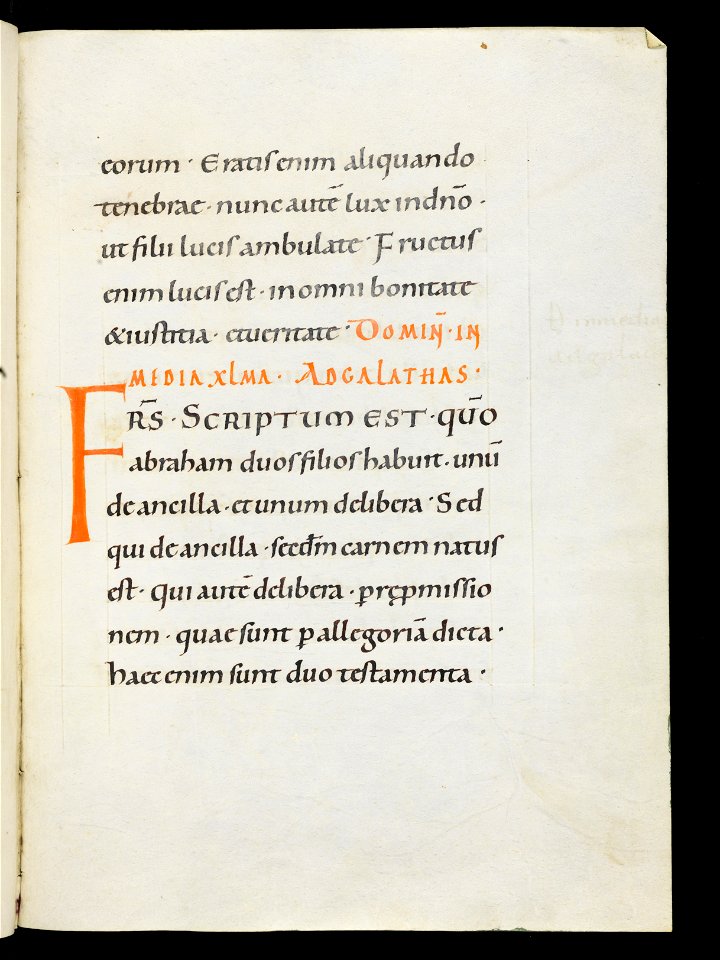 eorum · Eratis enim aliquando
tenebrae · nunc autē lux in dnō ·
ut filii lucis ambulate · Fructus
enim lucis est · in omni bonitate
& iustitia · et ueritate · DOMIN̄ · IN
MEDIA XLMA · AD GALATHAS ·
FRS̄ · SCRIPTUM EST · qūo
abraham duos filios habuit · unū
de ancilla · et unum de libera · Sed
qui de ancilla · secdm̄ carnem natus
est · qui autē de libera · p rępmissio
nem · quae sunt p allegoriā dicta ·
haec enim sunt duo testamenta ·